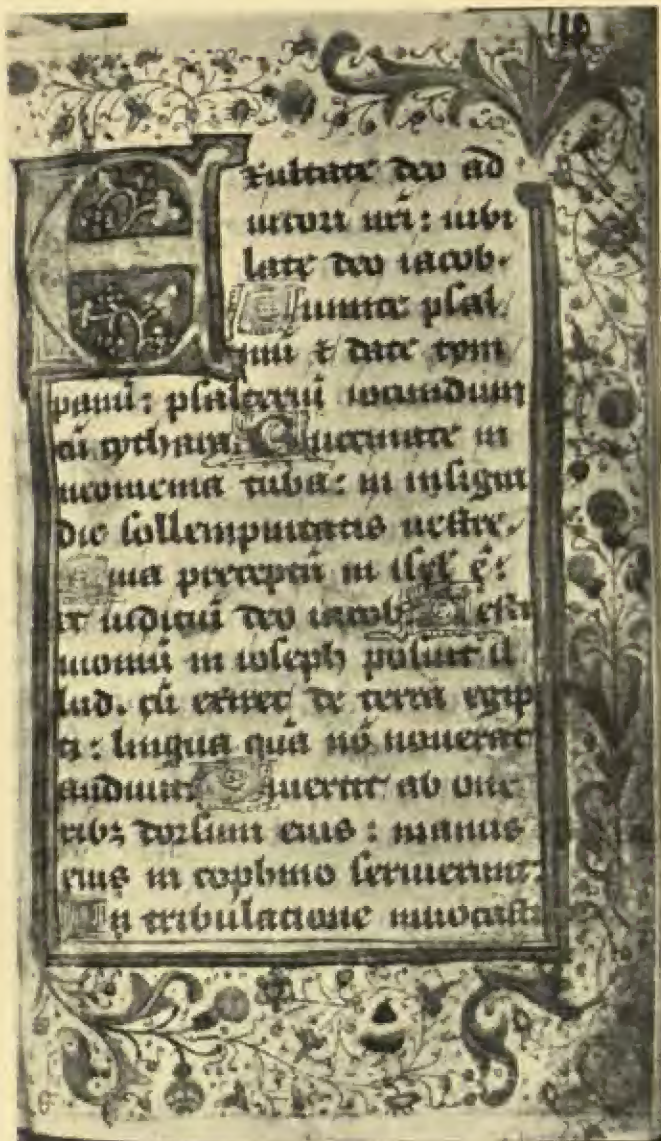 110
Exultate deo ad
iutori nr̄i : iubi
late deo iacob.
Sumite psal
mū ⁊ date tym
panū : psalteriū iocundum
cū cythara. Buccinate in
neomenia tuba : in insigni
die sollempnitatis uestre.
Quia preceptū in isrl̄ ē :
et iudiciū deo iacob. Testi
moniū in ioseph posuit il
lud. cū exiret de terra egip
ti : lingua quā nō nouerat
audiuit. Diuertit ab one
ribꝫ dorsum eius : manus
eius in cophino seruierunt.
In tribulatione inuocasti